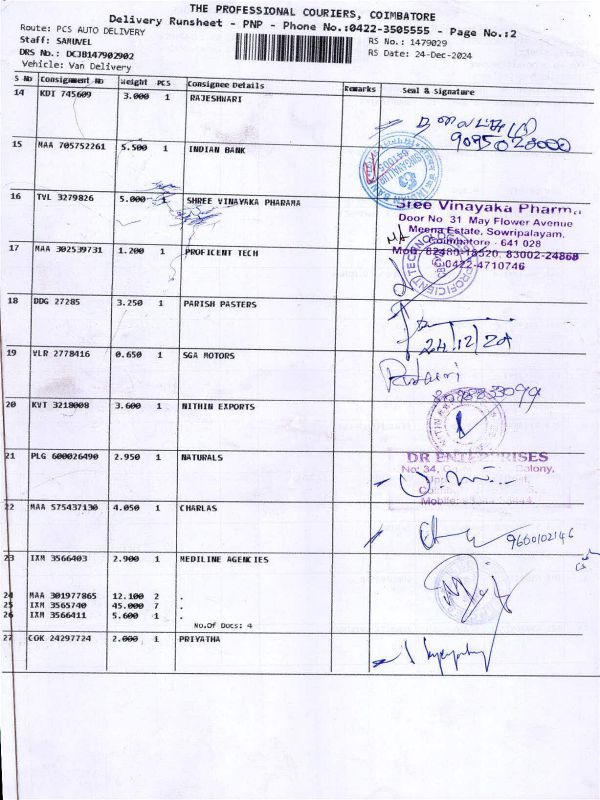 THE PROFESSIONAL COURIERS, COIMBATORE
Delivery Runsheet - PNP - Phone No.:0422-3505555 - Page No.:2
Route: PCS AUTO DELIVERY
Staff: SAMUVEL
RS No.: 1479029
DRS No.: DCJB147902902
RS Date: 24-Dec-2024
Vehicle: Van Delivery
S No Consignment No Weight PCS Consignee Details Remarks Seal & Signature
14 KDI 745609 3.000 1 RAJESHWARI
9095028000
15 MAA 705752261 5.500 1 INDIAN BANK
16 TVL 3279826 5.000 1 SHREE VINAYAKA PHARAMA
Sree Vinayaka Pharma
Door No 31 May Flower Avenue
Meena Estate, Sowripalayam,
Coimbatore - 641 028
Mob: 82480-18520, 83002-24868
0422-4710746
17 MAA 302539731 1.200 1 PROFICENT TECH
18 DDG 27285 3.250 1 PARISH PASTERS
24/12/24
19 VLR 2778416 0.650 1 SGA MOTORS
20 KVT 3218008 3.600 1 NITHIN EXPORTS
21 PLG 600026490 2.950 1 NATURALS
DR ENTERPRISES
No: 34, Colony,
Mobile:
22 MAA 575437130 4.050 1 CHARLAS
9660102146
23 IXM 3566403 2.900 1 MEDILINE AGENCIES
24 MAA 301977865 12.100 2 .
25 IXM 3565740 45.000 7 .
26 IXM 3566411 5.600 1 .
No.Of Docs: 4
27 COK 24297724 2.000 1 PRIYATHA